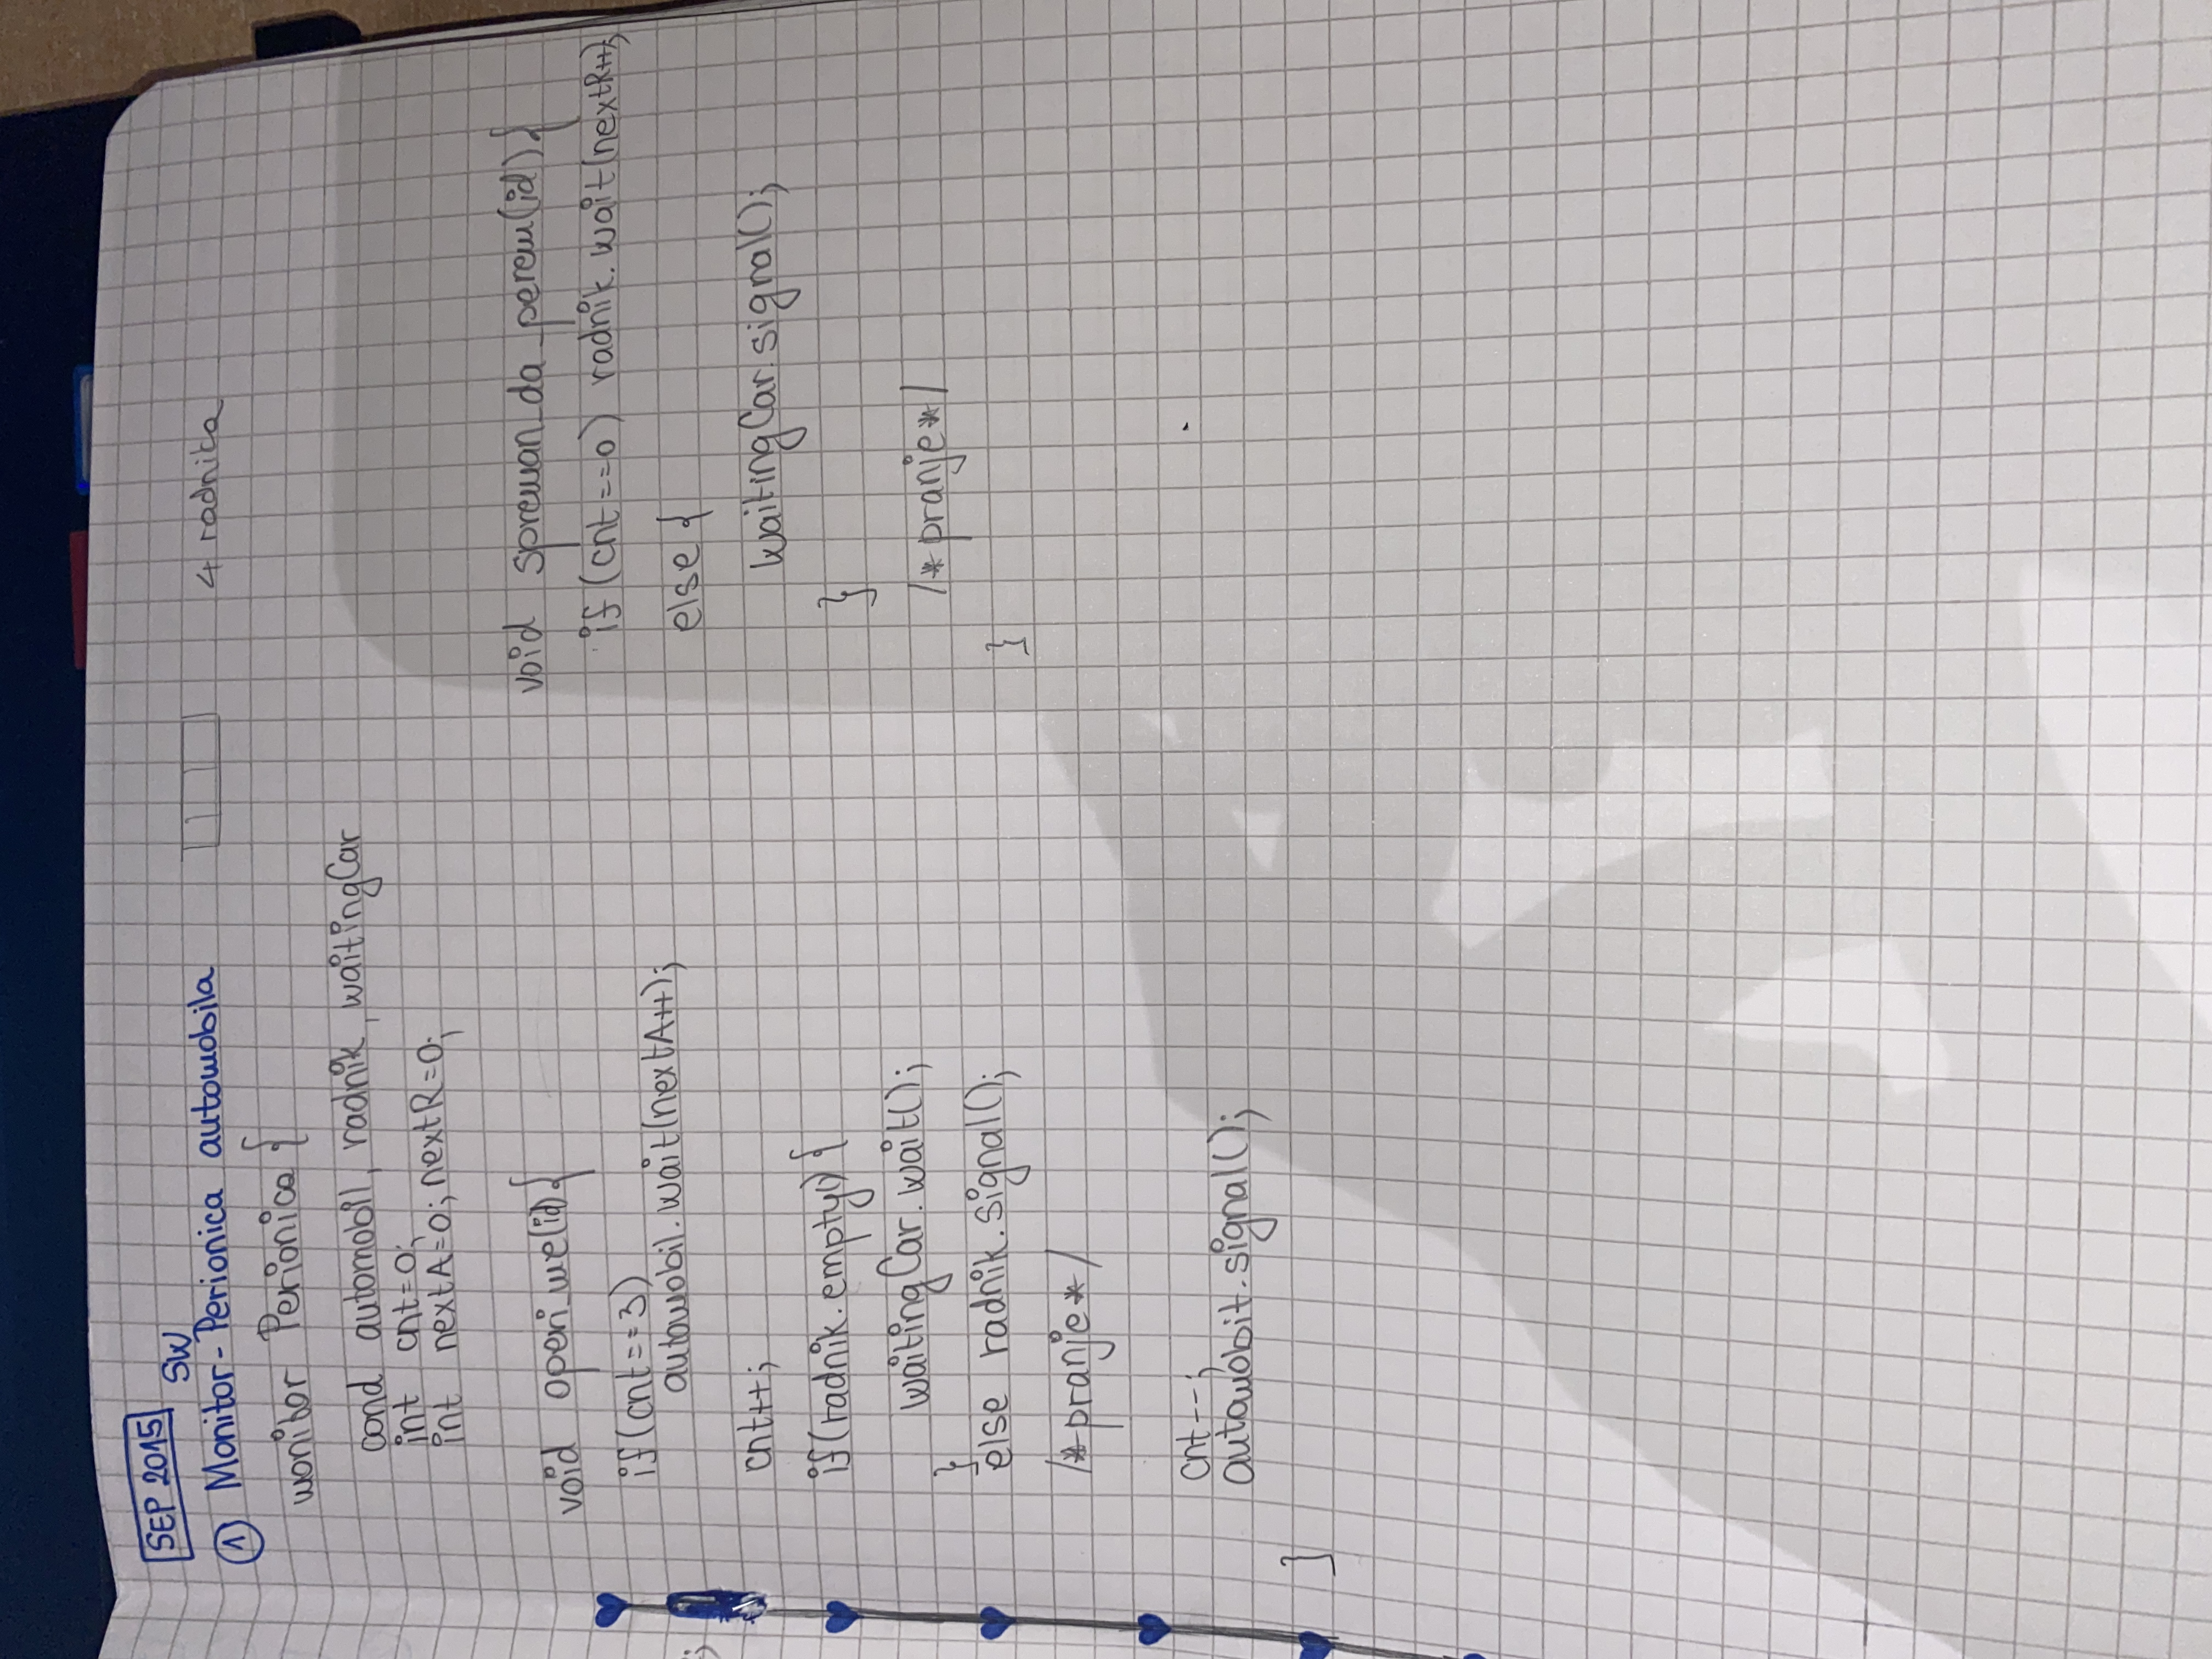 SEP 2015
SW
① Monitor-Perionica automobila
4 radnika
monitor Perionica {
cond automobil, radnik, waitingCar
int cnt=0;
int nextA=0; nextR=0;
void operi_me(id){
if(cnt==3)
automobil.wait(nextA++);
cnt++;
if(radnik.empty()){
waitingCar.wait();
}
else radnik.signal();
/*pranje*/
cnt--;
automobil.signal();
}
void spreman_da_perem(id){
if(cnt==0) radnik.wait(nextR++);
else {
waitingCar.signal();
}
/*pranje*/
}